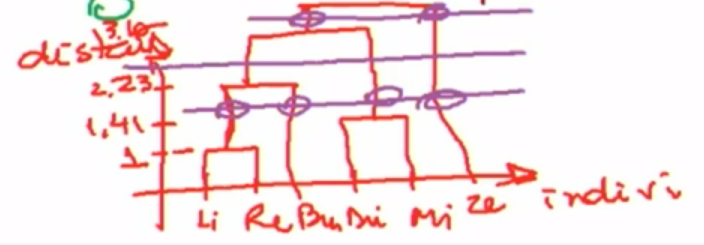 3.16
distan
2.23
1,41
1
Li Re Bu Di Mi Ze indivi